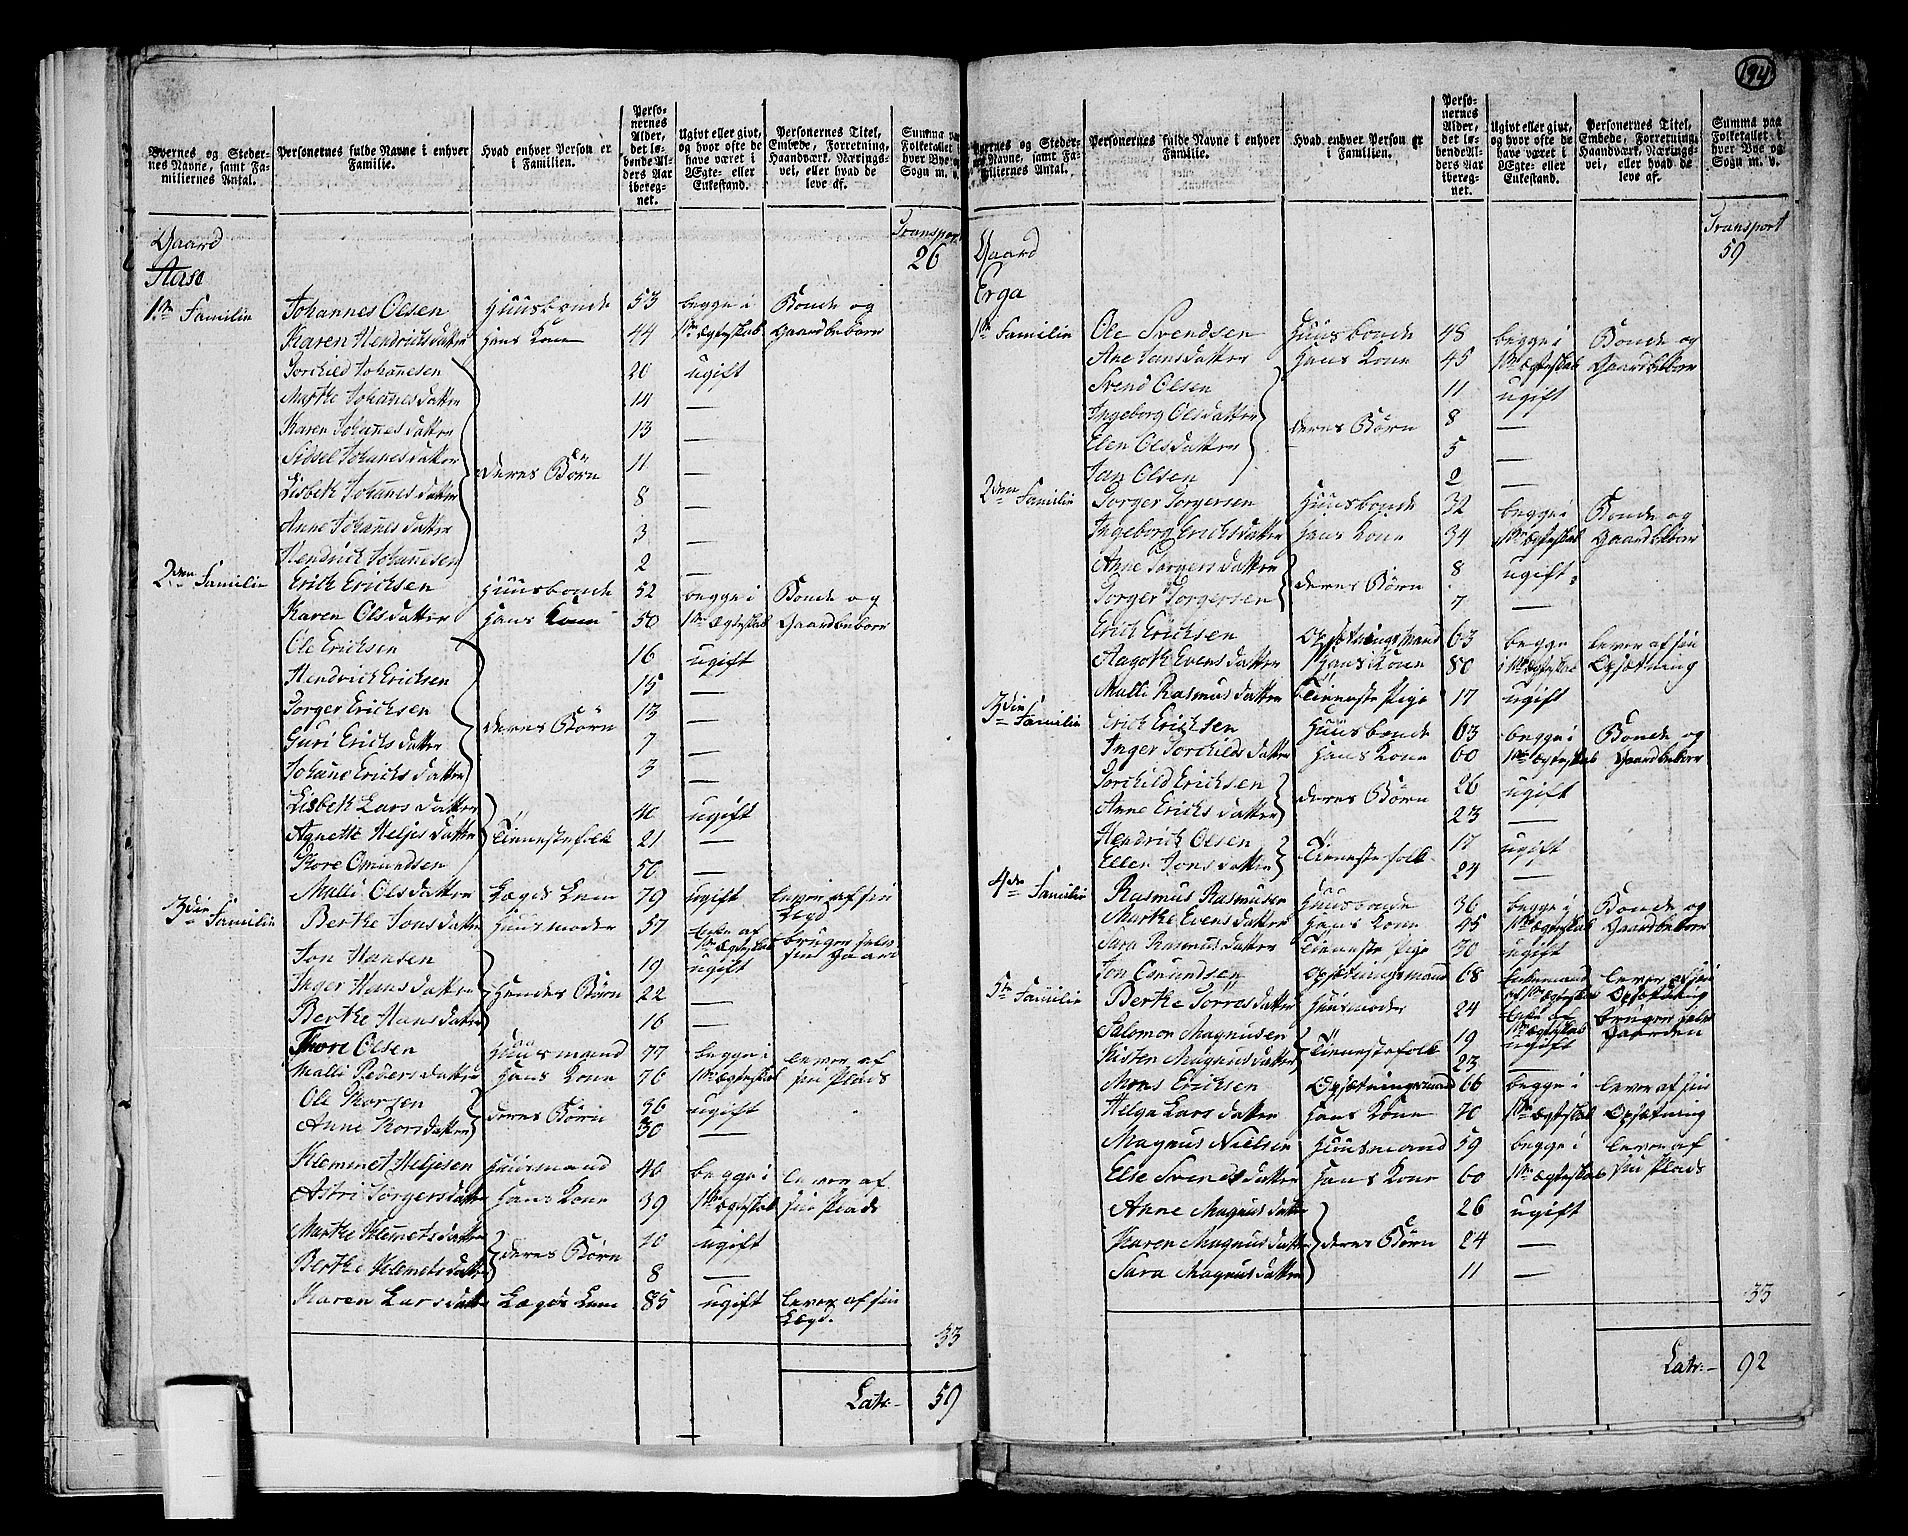 194
Byernes og Stedernes Navne, samt Familiernes Antal. | Personernes fulde Navne i enhver Familie. | Hvad enhver Person er i Familien. | Personernes Alder, det løbende Alders Aar iberegnet. | Ugivt eller givt, og hvor ofte de have været i Ægte- eller Enkestand. | Personernes Titel, Embede, Forretning, Haandværk, Næringsvei, eller hvad de leve af. | Summa paa Folketallet i hver Bye og Sogn m. v.
Gaard | Transport
Aase | 26
1ste Familie | Johannes Olsen | Huusbonde | 53 | begge i | Bonde og
Karen Hendrichsdatter | hans Kone | 44 | 1ste ægteskab | Gaardbeboer
Torchild Johanesen | 20 | ugift
Marthe Johanesdatter | 14 | —
Karen Johanesdatter | 13 | —
Sidsel Johanesdatter | deres Börn | 11 | —
Lisbeth Johanesdatter | 8 | —
Anne Johanesdatter | 3 | —
Hendrich Johanesen | 2 | —
2den Familie | Erich Erichsen | Huusbonde | 52 | begge i | Bonde og
Karen Olsdatter | hans Kone | 50 | 1ste ægteskab | Gaardbeboer
Ole Erichsen | 16 | ugift
Hendrich Erichsen | 15 | —
Torger Erichsen | 13 | —
Guri Erichsdatter | deres Börn | 7 | —
Johane Erichsdatter | 3 | —
Lisbeth Larsdatter | 40 | ugift
Agnethe Heljesdatter | Tienestefolk | 21 | —
Thore Omundsen | 50 | —
Malli Olsdatter | Lægds Lem | 79 | ugift | lever af sin Legd
3die Familie | Berthe Jonsdatter | Huusmoder | 57 | enke af 1ste ægteskab | bruger selv sin Gaard
Jon Hansen | 19 | ugift
Inger Hansdatter | hendes Börn | 22 | —
Berthe Hansdatter | 16 | —
Thore Olsen | Huusmand | 77 | begge i | lever af
Malli Pedersdatter | hans Kone | 76 | 1ste ægteskab | sin Plads
Ole Thorsen | deres Börn | 36 | ugift
Anne Thorsdatter | 30 | —
Klemmet Heljesen | Huusmand | 40 | begge i | lever af
Astri Torgersdatter | hans Kone | 39 | 1ste ægteskab | sin Plads
Marthe Klemetsdatter | deres Börn | 10 | ugift
Berthe Klemetsdatter | 8 | —
Karen Larsdatter | Lægds Lem | 85 | ugift | lever af sin Lægd.
33
Latr:— 59
Byernes og Stedernes Navne, samt Familiernes Antal. | Personernes fulde Navne i enhver Familie. | Hvad enhver Person er i Familien. | Personernes Alder, det løbende Alders Aar iberegnet. | Ugivt eller givt, og hvor ofte de have været i Ægte- eller Enkestand. | Personernes Titel, Embede, Forretning, Haandværk, Næringsvei, eller hvad de leve af. | Summa paa Folketallet i hver Bye og Sogn m. v.
Gaard | Transport
Erga | 59
1ste Familie | Ole Svendsen | Huusbonde | 48 | begge i | Bonde og
Ane Jansdatter | hans Kone | 45 | 1ste ægteskab | Gaardbeboer
Svend Olsen | 11 | ugift
Ingeborg Olsdatter | deres Börn | 8 | —
Elen Olsdatter | 5 | —
Jan Olsen | 2 | —
2den Familie | Torger Torgersen | Huusbonde | 32 | begge i | Bonde og
Ingeborg Erichsdatter | hans Kone | 34 | 1ste ægteskab | Gaardbeboer
Anne Torgersdatter | deres Börn | 8 | ugift
Torger Torgersen | 7 | —
Erich Erichsen | Opsætningsmand | 63 | begge | lever af sin
Aagoth Evensdatter | hans Kone | 80 | i 1ste ægteskab | Opsætning
Malli Rasmusdatter | Tieneste Pige | 17 | ugift
3die Familie | Erich Erichsen | Huusbonde | 63 | begge i | Bonde og
Inger Torchildsdatter | hans Kone | 60 | 1ste ægteskab | Gaardbeboer
Torchild Erichsen | deres Börn | 26 | ugift
Anne Erichsdatter | 23 | —
Hendrich Olsen | Tienestefolk | 17 | ugift
Ellen Jonsdatter | 24 | —
4de Familie | Rasmus Rasmusen | Huusbonde | 36 | begge i | Bonde og
Marthe Evensdatter | hans Kone | 45 | 1ste ægteskab | Gaardbeboer
Sara Rasmusdatter | Tieneste Pige | 70 | ugift
Jon Omundsen | Opsætningsmand | 68 | Enkemand af 1ste ægteskab | lever af sin Opsætning
5te Familie | Berthe Torresdatter | Huusmoder | 24 | enke af 1ste ægteskab | bruger selv Gaarden
Salomon Magnusen | Tienestefolk | 19 | ugift
Kisten Magnusdatter | 23 | —
Mons Erichsen | Opsætningsmand | 66 | begge i | lever af sin
Helga Larsdatter | hans Kone | 70 | 1ste ægteskab | Opsætning
Magnus Nielsen | Huusmand | 59 | begge i | lever af
Else Svensdatter | hans Kone | 60 | 1ste ægteskab | sin Plads
Anne Magnusdatter | 26 | ugift
Karen Magnusdatter | deres Börn | 24 | —
Sara Magnusdatter | 11 | —
33
Latr:— 92